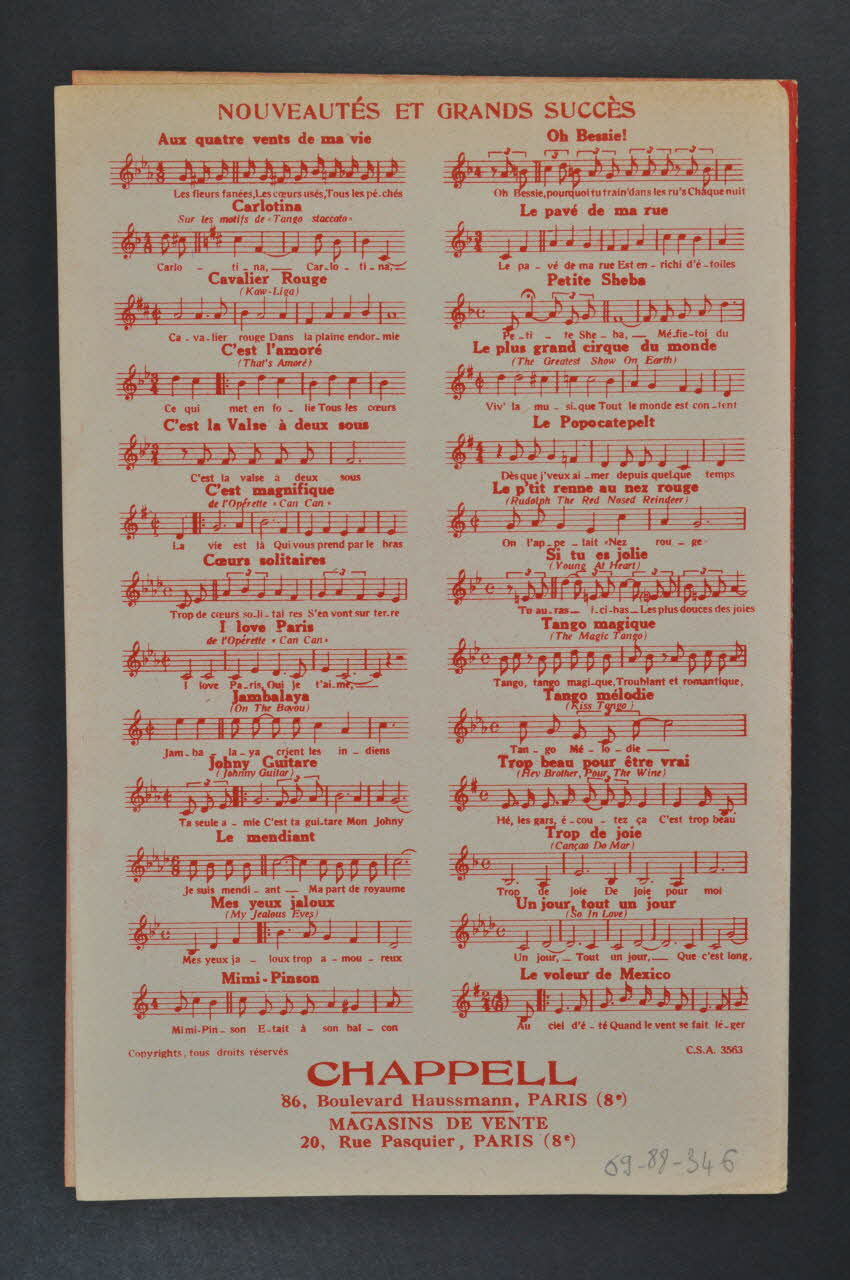 NOUVEAUTÉS ET GRANDS SUCCÈS
Aux quatre vents de ma vie
Les fleurs fanées, Les cœurs usés, Tous les pé-chés
Carlotina
Sur les motifs de «Tango staccato»
Carlo - ti-na, Car-lo-ti-na,
Cavalier Rouge
(Kaw-Liga)
Ca-va-lier rouge Dans la plaine endor-mie
C'est l'amoré
(That's Amoré)
Ce qui met en fo-lie Tous les cœurs
C'est la Valse à deux sous
C'est la valse à deux sous
C'est magnifique
de l'Opérette «Can Can»
La vie est là Qui vous prend par le bras
Cœurs solitaires
Trop de cœurs so-li-tai res S'en vont sur ter-re
I love Paris
de l'Opérette «Can Can»
I love Pa-ris, Oui je t'ai-me,
Jambalaya
(On The Bayou)
Jam-ba la-ya crient les in-diens
Johny Guitare
(Johnny Guitar)
Ta seule a-mie C'est ta gui-tare Mon Johny
Le mendiant
Je suis mendi-ant Ma part de royaume
Mes yeux jaloux
(My Jealous Eyes)
Mes yeux ja-loux trop a-mou-reux
Mimi-Pinson
Mimi-Pin-son E-tait à son bal-con
Oh Bessie!
Oh Bessie, pourquoi tu train' dans les ru's Chaque nuit
Le pavé de ma rue
Le pa-vé de ma rue Est en-richi d'é-toiles
Petite Sheba
Pe-ti-te She-ba, Mé-fie-toi du
Le plus grand cirque du monde
(The Greatest Show On Earth)
Viv' la mu-si-que Tout le monde est con-tent
Le Popocatepelt
Dès que j'veux ai-mer depuis quelque temps
Le p'tit renne au nez rouge
(Rudolph The Red Nosed Reindeer)
On l'ap-pe-lait «Nez rou-ge
Si tu es jolie
(Young At Heart)
Tu au-ras i-ci-bas Les plus douces des joies
Tango magique
(The Magic Tango)
Tango, tango magi-que, Troublant et romantique,
Tango mélodie
(Kiss Tango)
Tan-go Mé-lo-die
Trop beau pour être vrai
(Hey Brother, Pour The Wine)
Hé, les gars, é-cou-tez ça C'est trop beau
Trop de joie
(Cançao Do Mar)
Trop de joie De joie pour moi
Un jour, tout un jour
(So In Love)
Un jour, Tout un jour, Que c'est long,
Le voleur de Mexico
Au ciel d'é-té Quand le vent se fait lé-ger
Copyrights, tous droits réservés
C.S.A. 3563
CHAPPELL
86, Boulevard Haussmann, PARIS (8e)
MAGASINS DE VENTE
20, Rue Pasquier, PARIS (8e)
69-88-346